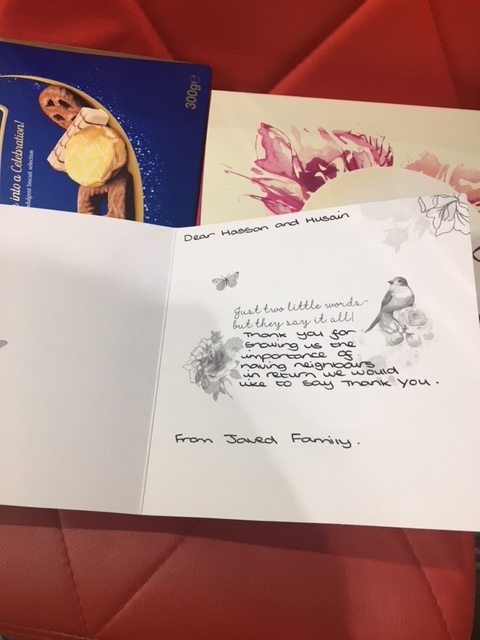 into a Celebration!
indulgent biscuit selection
300g℮
Dear Hassan and Husain
Just two little words-
but they say it all!
Thank you for
showing us the
importance of
having neighbours
in return we would
like to say Thank you.
From Javed Family.